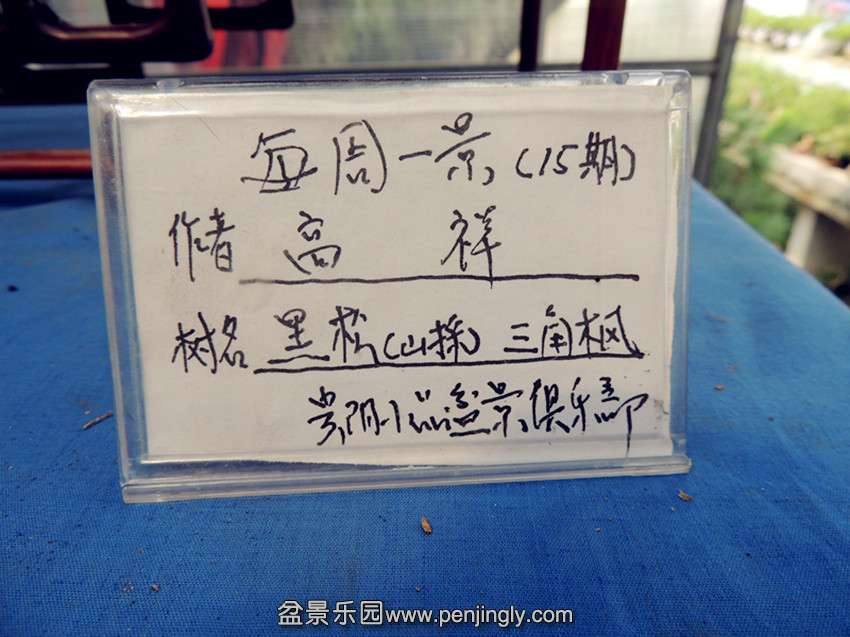 每周一景(15期)
作者 高 祥
树名 黑松(山採) 三角枫
贵阴小品盆景俱乐部
盆景乐园www.penjingly.com